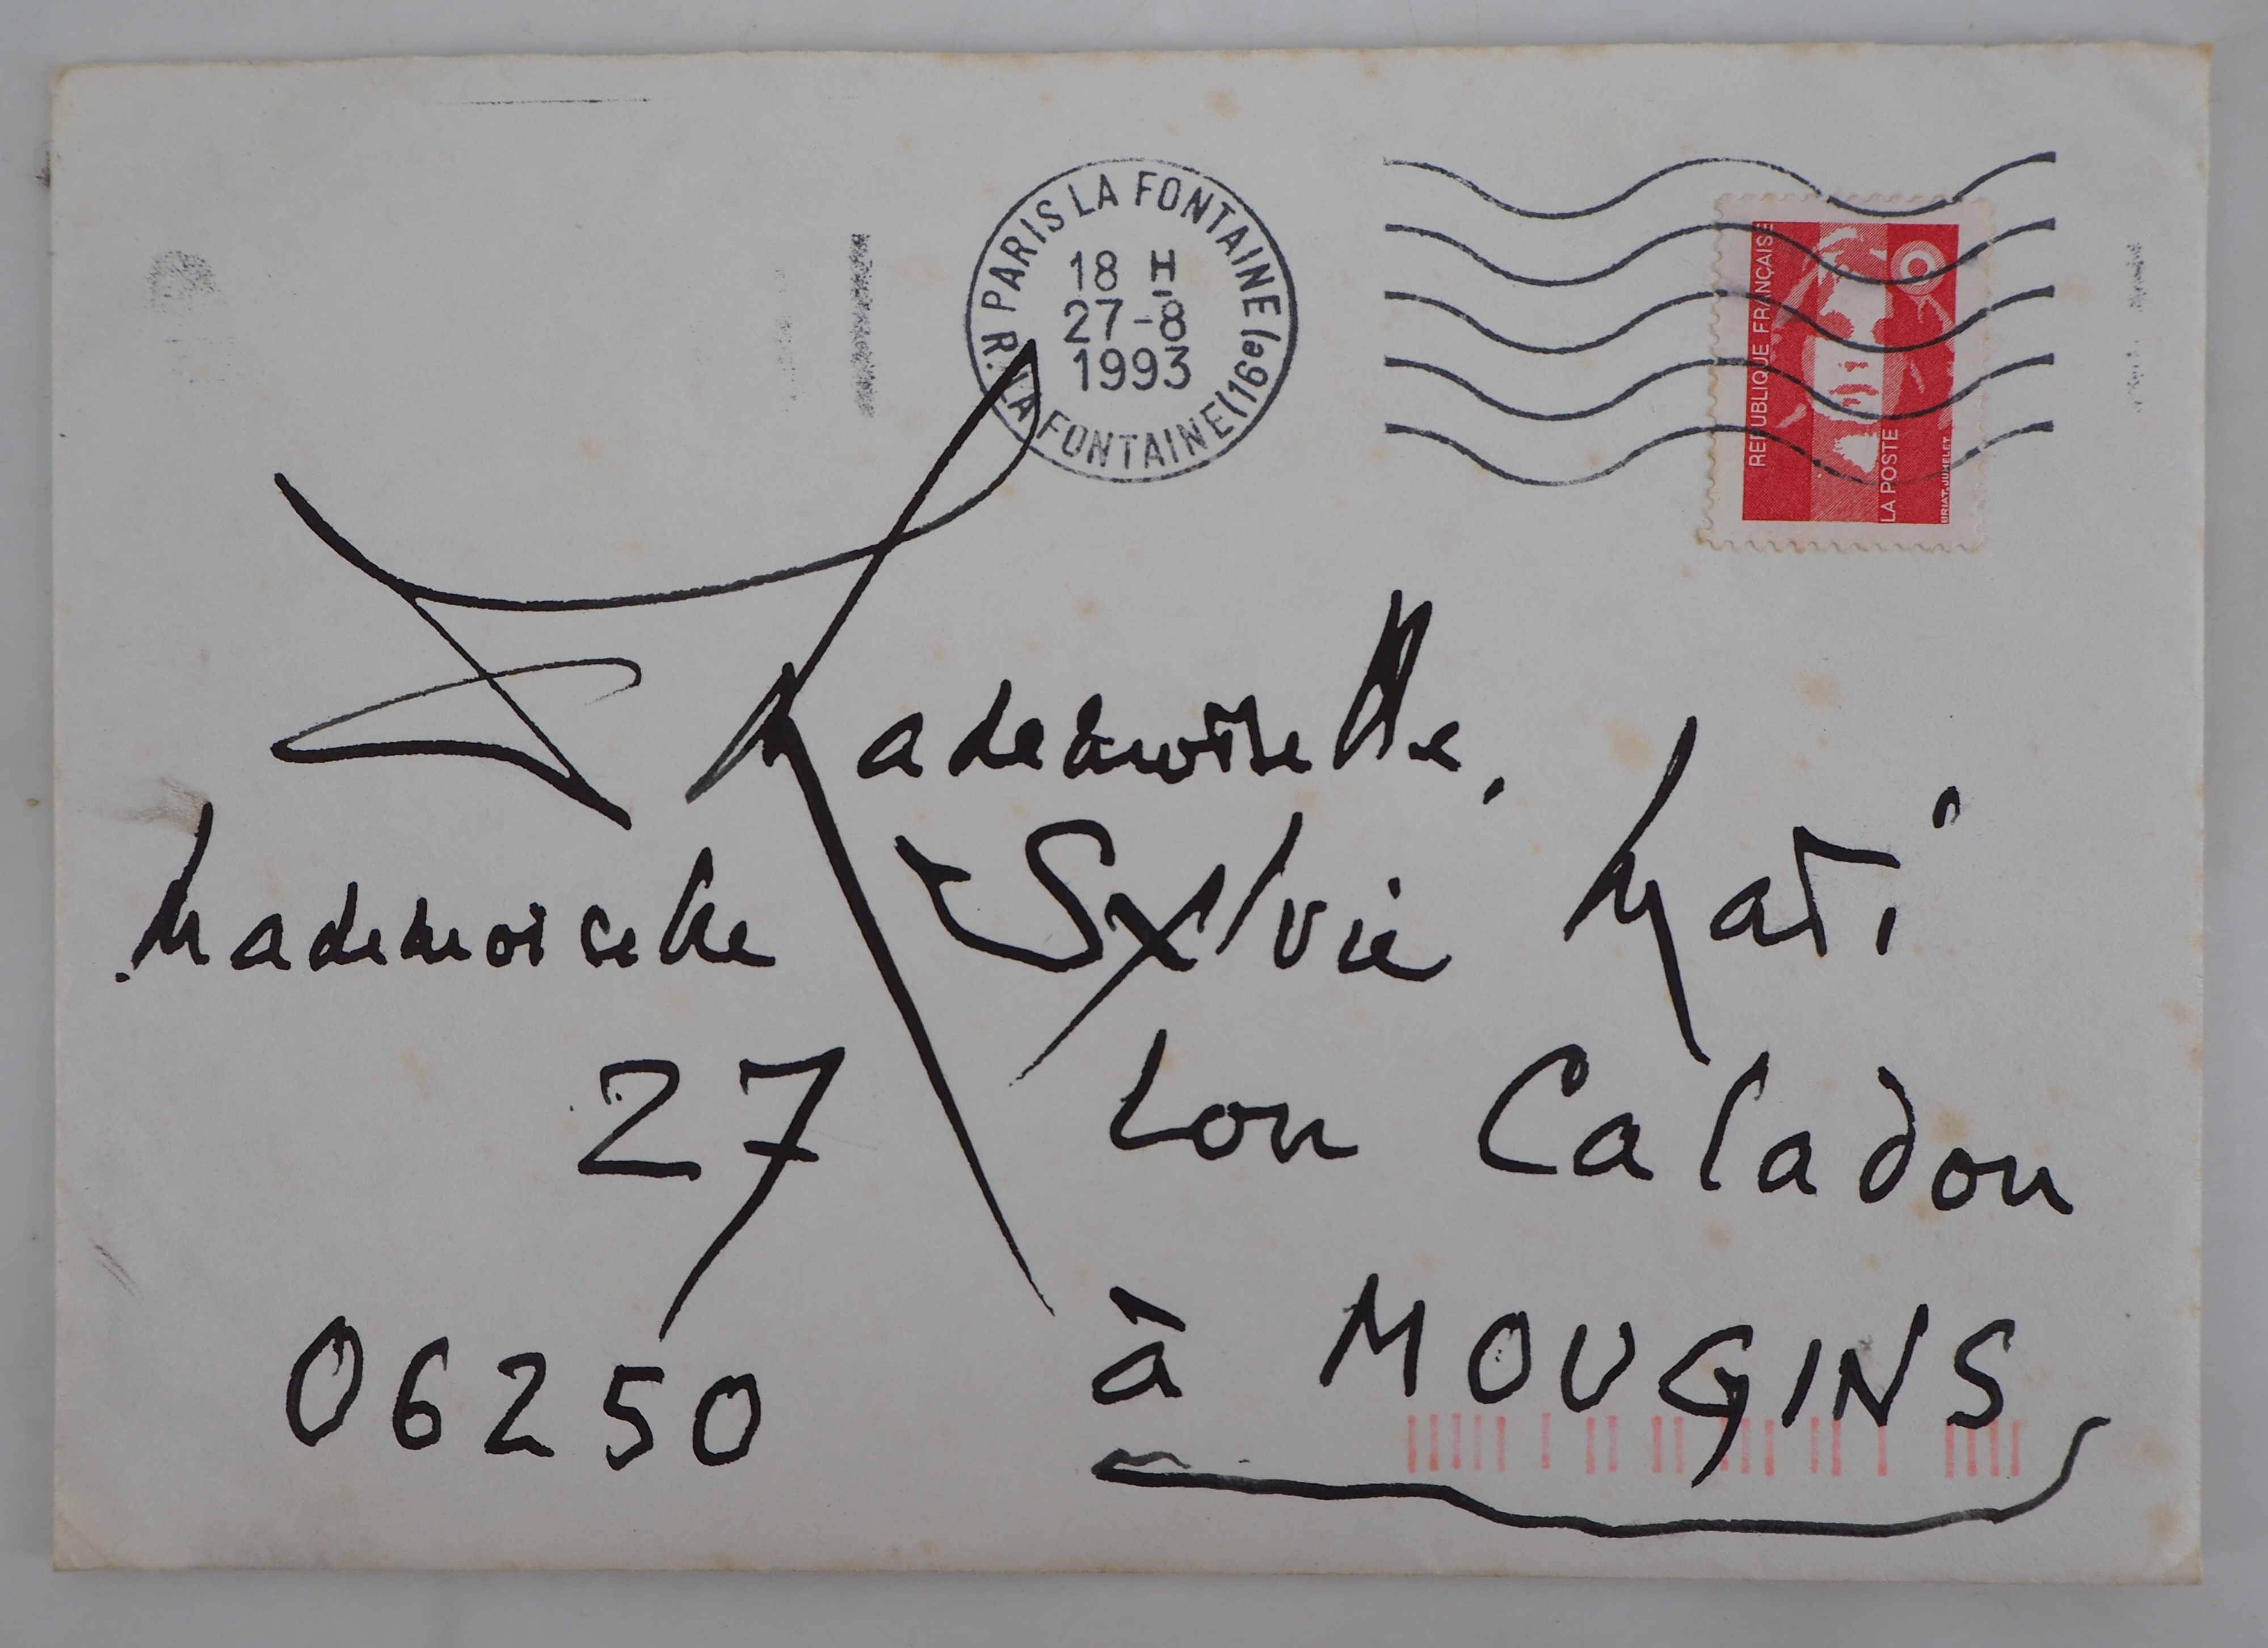 PARIS LA FONTAINE
18 H
27-8
1993
R. LA FONTAINE (16e)
REPUBLIQUE FRANÇAISE
LA POSTE
BRIAT.JUMELET
Mademoiselle,
Mademoiselle Sylvie Mati
27 Lou Caladou
06250 à MOUGINS